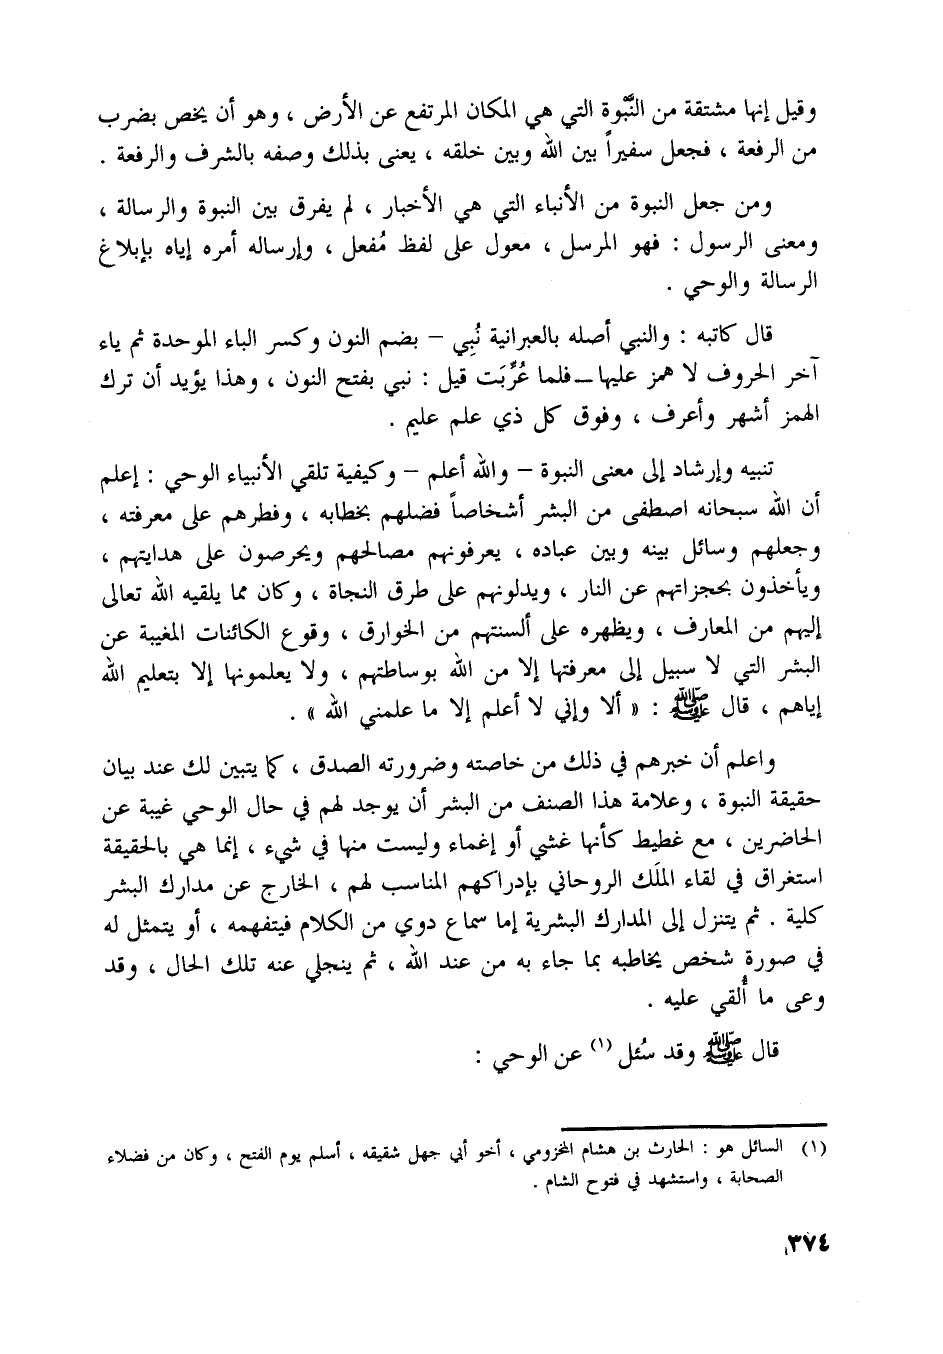 وقيل إنها مشتقة من النَّبْوة التي هي المكان المرتفع عن الأرض ، وهو أن يخص بضرب
من الرفعة ، فجعل سفيراً بين الله وبين خلقه ، يعنى بذلك وصفه بالشرف والرفعة .
ومن جعل النبوة من الأنباء التي هي الأخبار ، لم يفرق بين النبوة والرسالة ،
ومعنى الرسول : فهو المرسل ، معول على لفظ مُفعل ، وإرساله أمره إياه بإبلاغ
الرسالة والوحي .
قال كاتبه : والنبي أصله بالعبرانية نُبِي – بضم النون وكسر الباء الموحدة ثم ياء
آخر الحروف لا همز عليها – فلما عُرِّبَت قيل : نبي بفتح النون ، وهذا يؤيد أن ترك
الهمز أشهر وأعرف ، وفوق كل ذي علم عليم .
تنبيه وإرشاد إلى معنى النبوة – والله أعلم – وكيفية تلقي الأنبياء الوحي : إعلم
أن الله سبحانه اصطفى من البشر أشخاصاً فضلهم بخطابه ، وفطرهم على معرفته ،
وجعلهم وسائل بينه وبين عباده ، يعرفونهم مصالحهم ويحرصون على هدايتهم ،
ويأخذون بحجزاتهم عن النار ، ويدلونهم على طرق النجاة ، وكان مما يلقيه الله تعالى
إليهم من المعارف ، ويظهره على ألسنتهم من الخوارق ، وقوع الكائنات المغيبة عن
البشر التي لا سبيل إلى معرفتها إلا من الله بوساطتهم ، ولا يعلمونها إلا بتعليم الله
إياهم ، قال ﷺ : « ألا وإني لا أعلم إلا ما علمني الله » .
واعلم أن خبرهم في ذلك من خاصته وضرورته الصدق ، كما يتبين لك عند بيان
حقيقة النبوة ، وعلامة هذا الصنف من البشر أن يوجد لهم في حال الوحي غيبة عن
الحاضرين ، مع غطيط كأنها غشي أو إغماء وليست منها في شيء ، إنما هي بالحقيقة
استغراق في لقاء الملَك الروحاني بإدراكهم المناسب لهم ، الخارج عن مدارك البشر
كلية . ثم يتنزل إلى المدارك البشرية إما سماع دوي من الكلام فيتفهمه ، أو يتمثل له
في صورة شخص يخاطبه بما جاء به من عند الله ، ثم ينجلي عنه تلك الحال ، وقد
وعى ما أُلقي عليه .
قال ﷺ وقد سُئل (١) عن الوحي :
(١) السائل هو : الحارث بن هشام المخزومي ، أخو أبي جهل شقيقه ، أسلم يوم الفتح ، وكان من فضلاء
الصحابة ، واستشهد في فتوح الشام .
٣٧٤